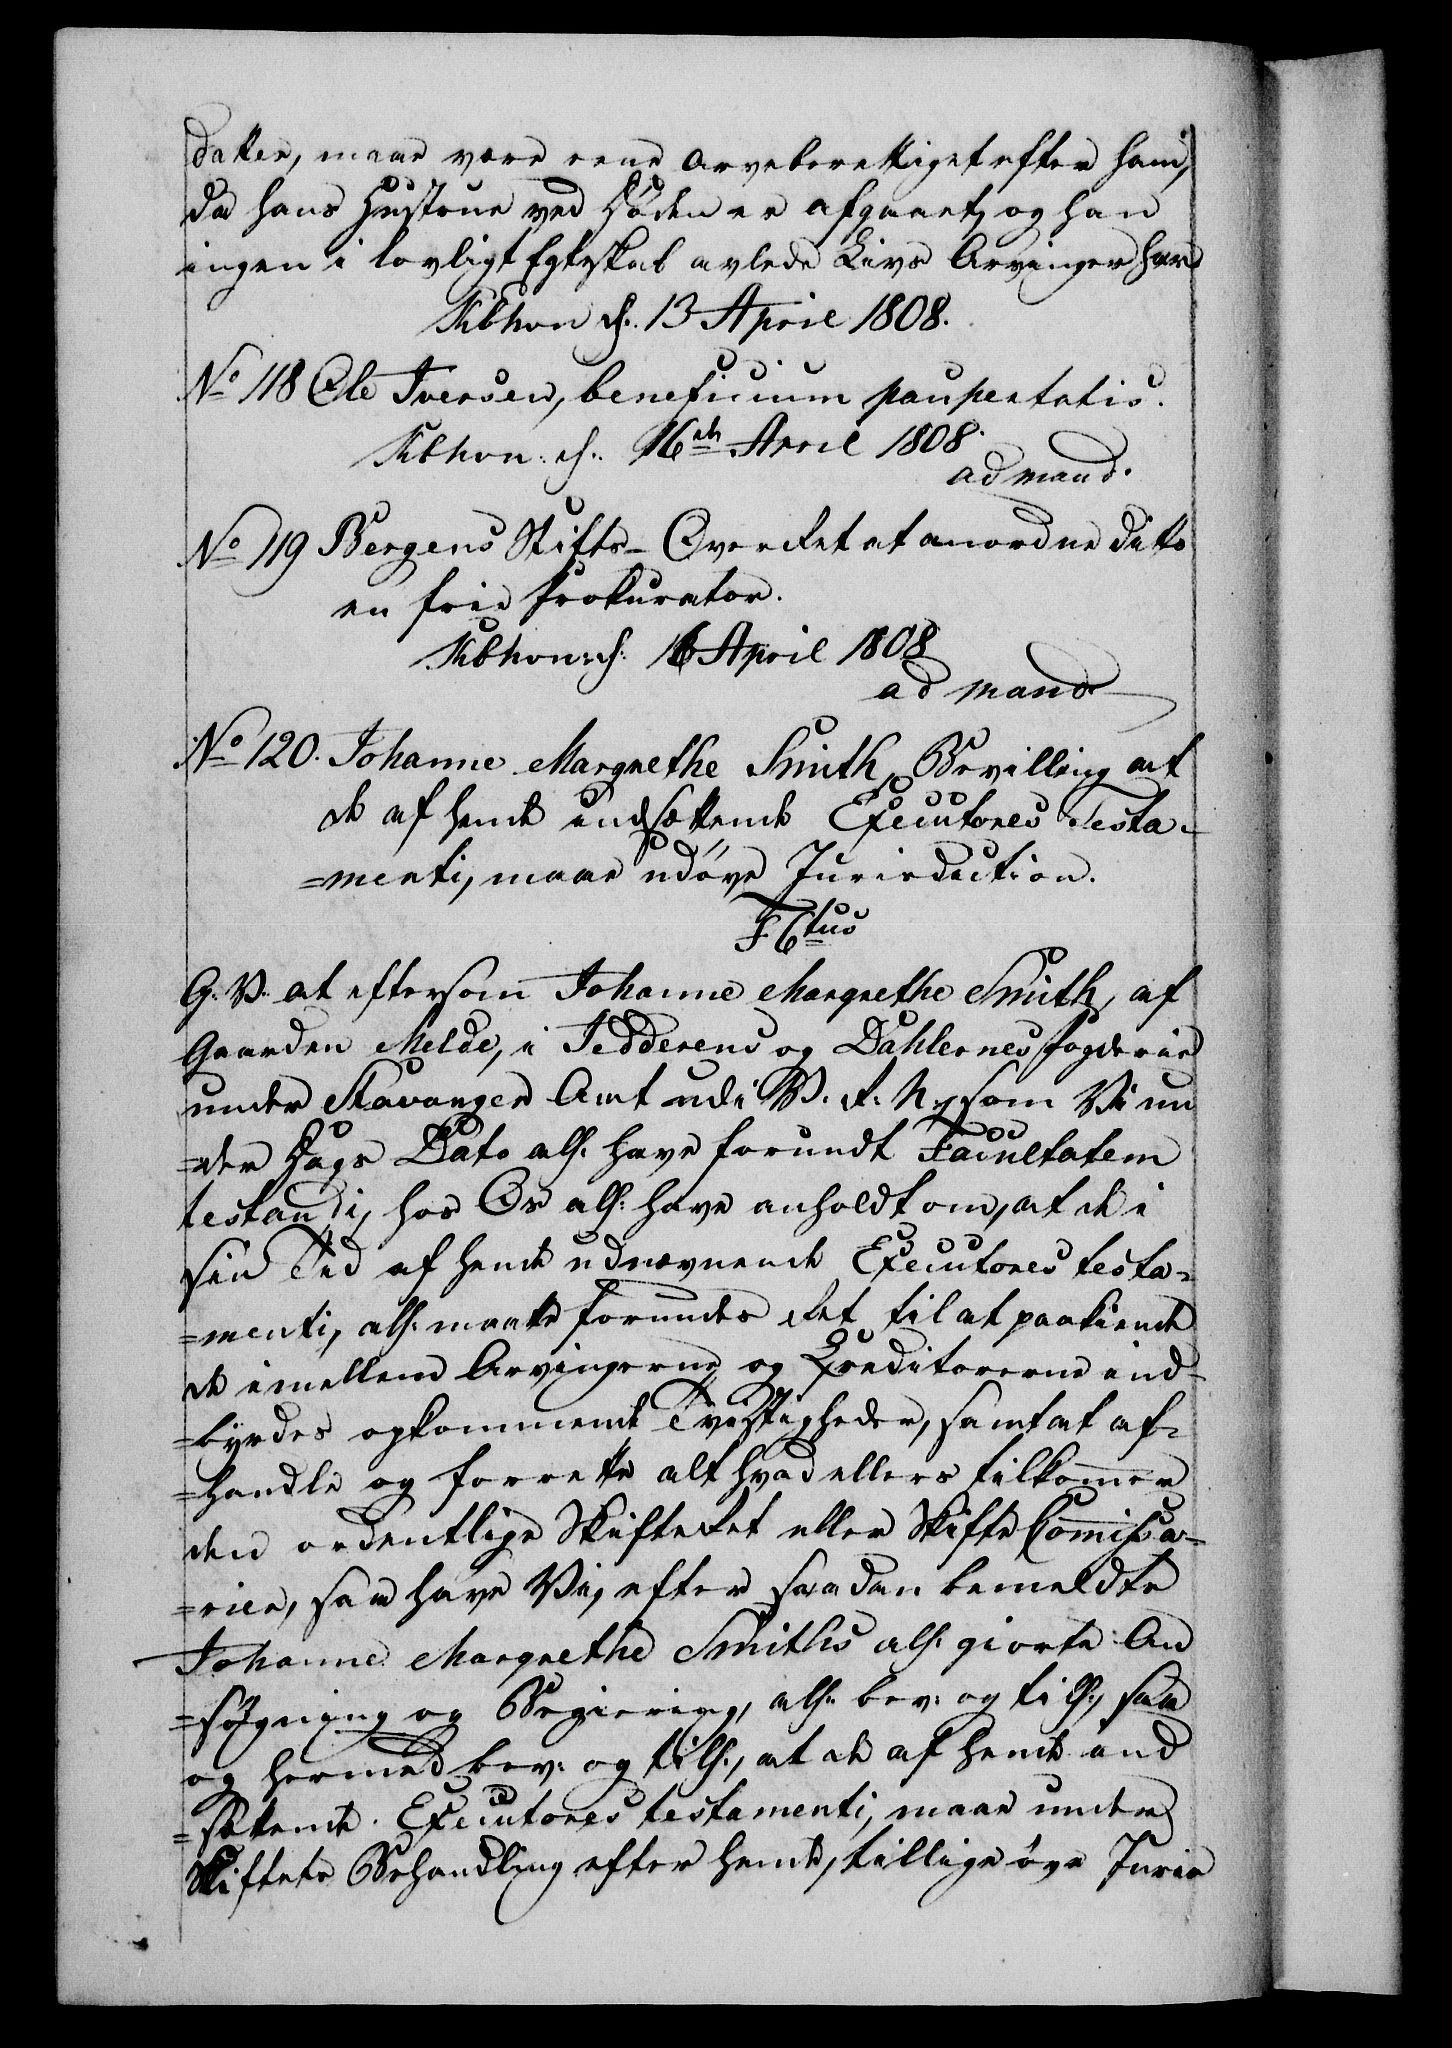 datter, maae være eene arveberettiget efter ham,
da hans Hustrue ved Døden er afgaaet, og han
ingen i lovligt Egteskab avlede Livs Arvinger har
Kbhvn d. 13 April 1808.
No 118 Ole Iversen, beneficium paupertatis.
Kbhvn: d. 16de April 1808.
ad mand.
No 119 Bergens Stifts-Overret at anordne ditto
en frie Prokurator.
Kbhvn: d. 16 April 1808
ad mand
No 120. Johanne Margrethe Smith, Bevilling at
de af hende indsættende Executores Testa-
=menti, maae udøve Jurisdiction.
F. 6tus
G. V. at eftersom Johanne Margrethe Smith, af
Gaarden Melde, i Jedderens og Dahlernes Fogderie
under Stavanger Amt udi V. R. N., som Vi un
=der Dags Dato all: have forundt Facultatem
testandi, hos Os all: have anholdt om, at de i
sin Tid af hende udnævnende Executores testa-
=menti, all: maatte forundes Ret til at paakiende
de imellem Arvingerne og Creditorerne ind-
=byrdes opkommende Tvistigheder, samt at af-
=handle og forrette alt hvad ellers tilkommer
den ordentlige Skifteret eller Skifte Commissa-
=rier, saa have Vi, efter saadan bemeldte
Johanne Margrethe Smiths all: giorte An
=søgning og Begiering, all: bev: og till:, saa
og hermed bev: og till:, at de af hende ind
=sættende Executores testamenti, maae under
Skiftets Behandling efter hende, tillige øve Juris